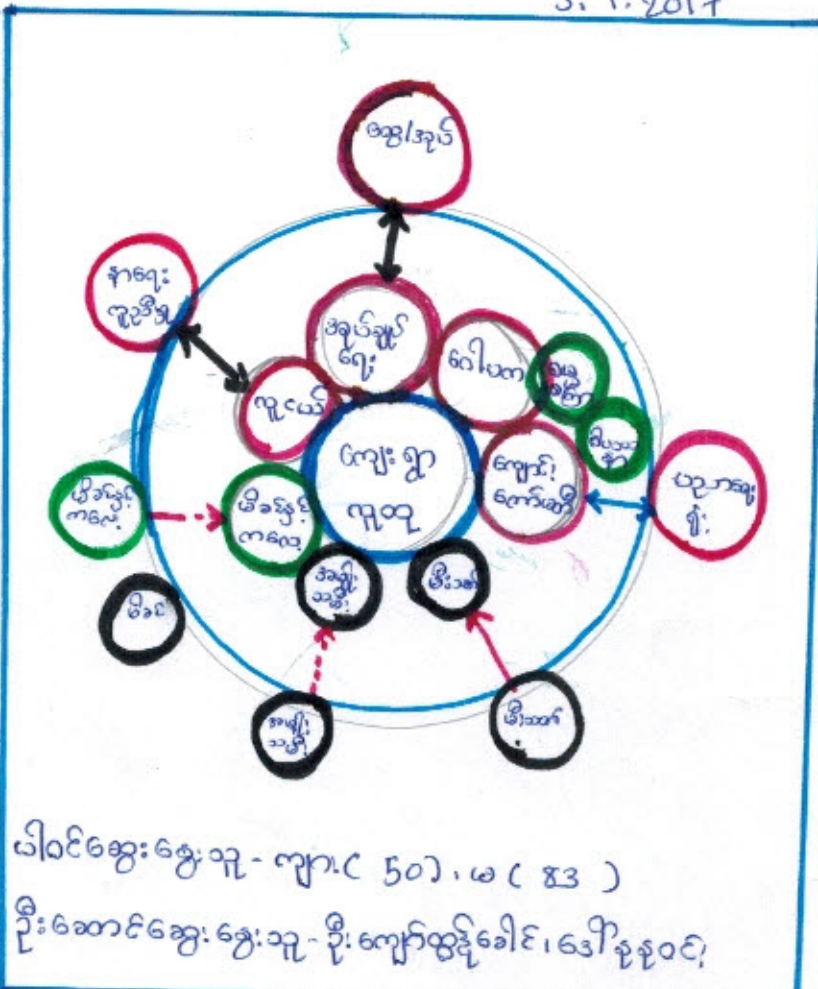 ထွေ/အုပ်
နာရေး
ကူညီမှု
အုပ်ချုပ်
ရေး
ဂေါပက
လူငယ်
ကျေးရွာ
လူထု
ကျောင်း
ကော်မတီ
ပညာရေး
ရုံး
မိခင်နှင့်
ကလေး
မိခင်နှင့်
ကလေး
မိခင်
အမျိုး
သမီး
မီးသတ်
အမျိုး
သမီး
မီးသတ်
ပါဝင်ဆွေးနွေးသူ - ကျား ( 50 ) ၊ မ ( 83 )
ဦးဆောင်ဆွေးနွေးသူ - ဦးကျော်ထွန်းခေါင်၊ ဒေါ်နုနုဝင်း